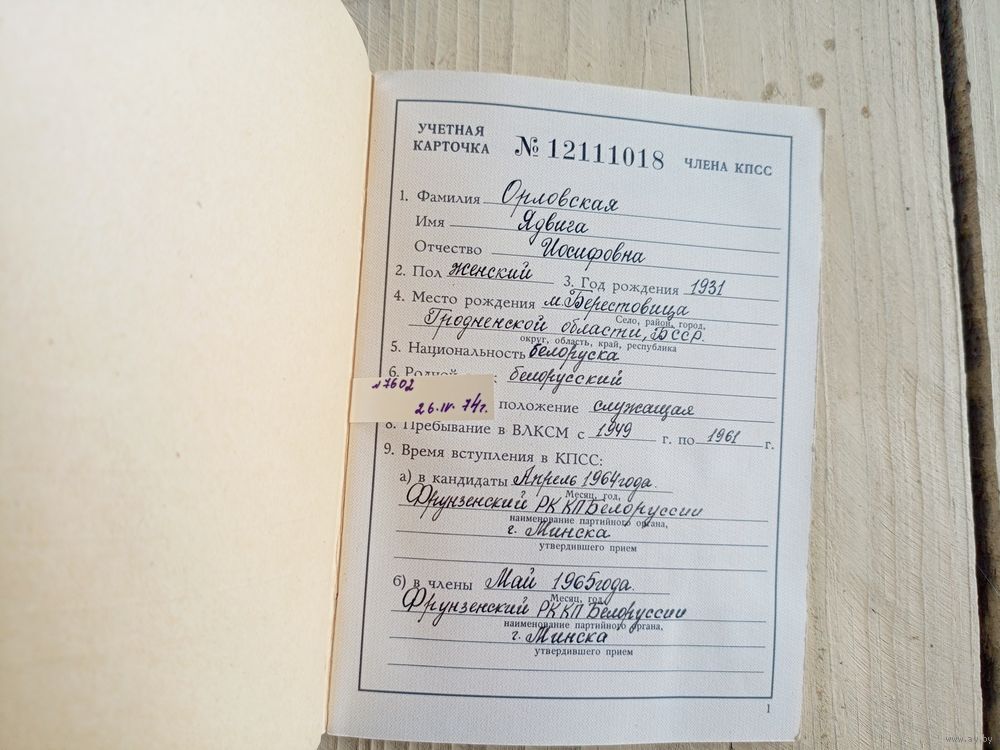 УЧЕТНАЯ
КАРТОЧКА № 12111018 ЧЛЕНА КПСС
1. Фамилия Орловская
Имя Ядвига
Отчество Иосифовна
2. Пол женский 3. Год рождения 1931
4. Место рождения м. Берестовица
Село, район, город,
Гродненской области, БССР.
округ, область, край, республика
5. Национальность белоруска
6. Родной белорусский
№7602
26.IV.74г.
положение служащая
8. Пребывание в ВЛКСМ с 1949 г. по 1961 г.
9. Время вступления в КПСС:
а) в кандидаты Апрель 1964 года.
Месяц, год,
Фрунзенский РК КП Белоруссии
наименование партийного органа,
г. Минска
утвердившего прием
б) в члены Май 1965 года.
Месяц, год,
Фрунзенский РК КП Белоруссии
наименование партийного органа,
г. Минска
утвердившего прием
1
www.ay.by